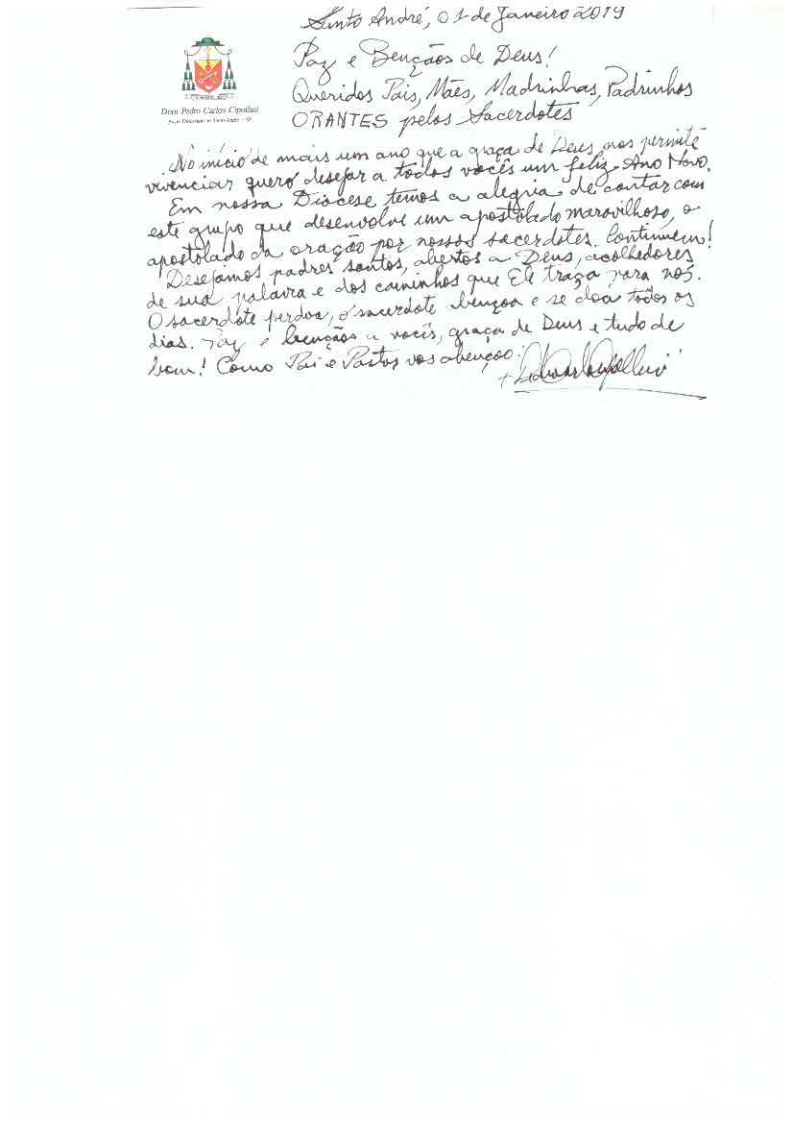 Santo André, 01 de Janeiro 2019
Dom Pedro Carlos Cipollini
Paz e Bençãos de Deus!
Queridos Pais, Mães, Madrinhas, Padrinhos
ORANTES pelos Sacerdotes
No início de mais um ano que a graça de Deus nos permite
vivenciar quero desejar a todos vocês um feliz Ano Novo.
Em nossa Diocese temos a alegria de contar com
este grupo que desenvolve um apostolado maravilhoso, o
apostolado da oração por nossos sacerdotes. Continuem!
Desejamos padres santos, abertos a Deus, acolhedores
de sua palavra e dos caminhos que Ele traça para nós.
O sacerdote perdoa, o sacerdote bençoa e se doa todos os
dias. Paz e bençãos a vocês, graça de Deus e tudo de
bom! Como Pai e Pastor vos abençoo.